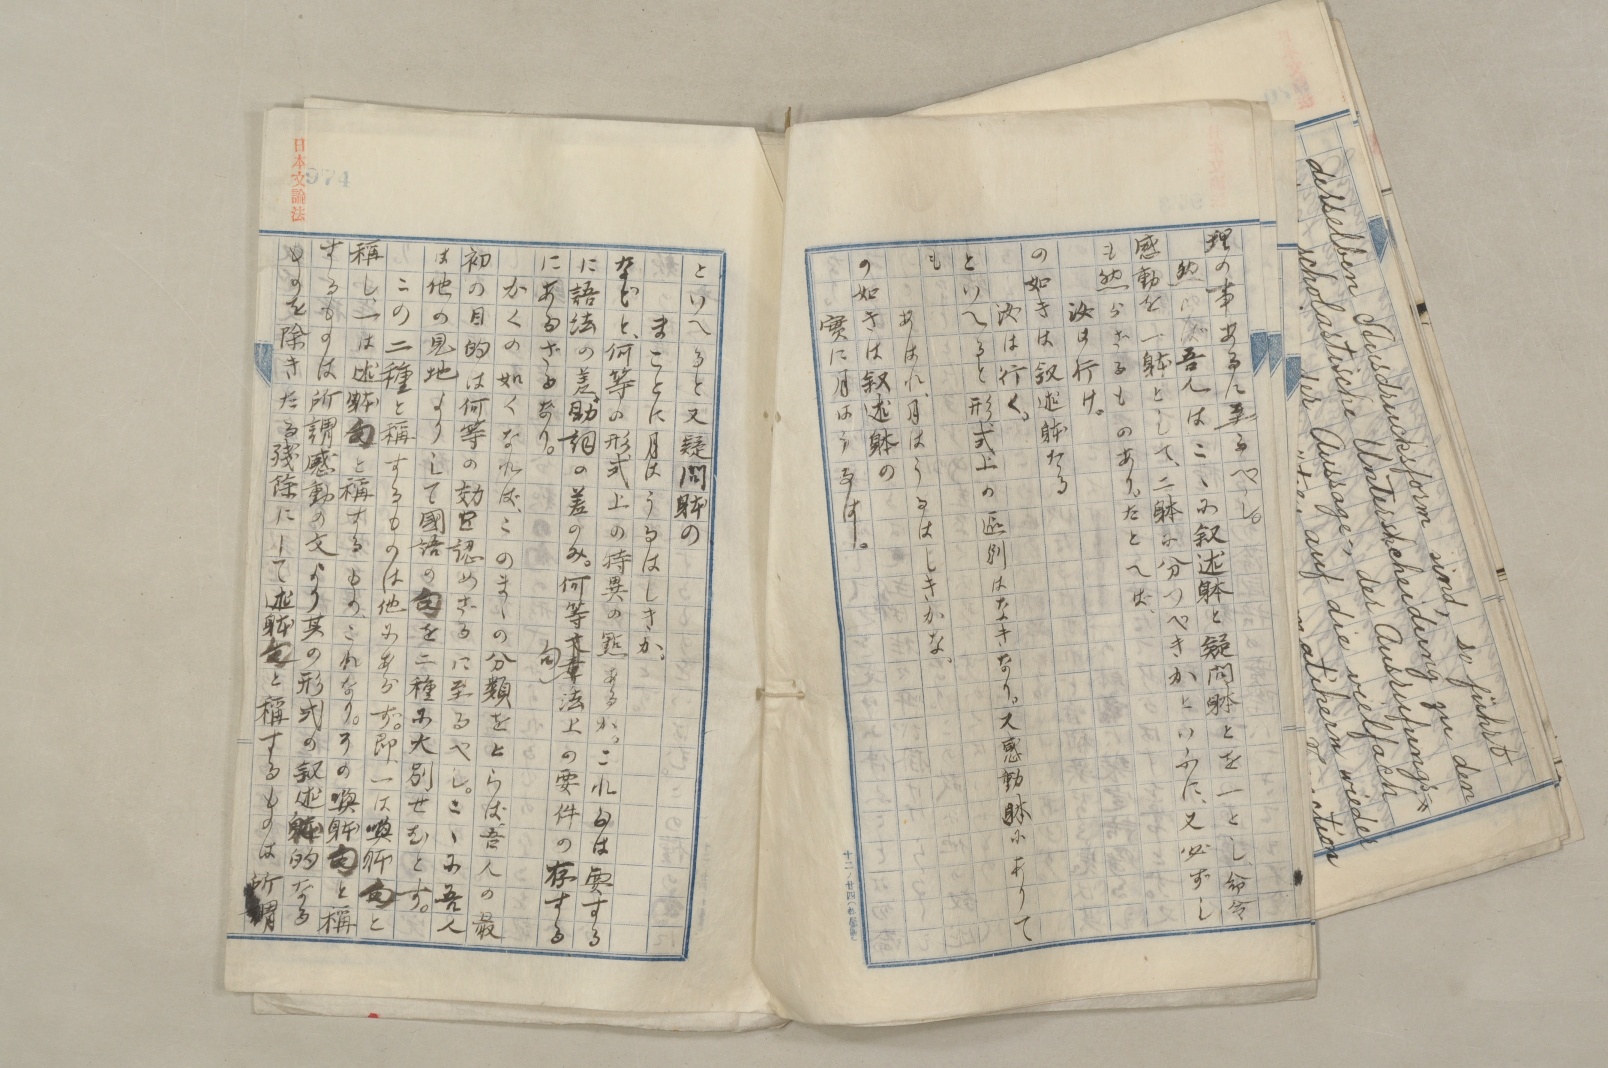 理の事あるに至るべし。
然らば吾人はこゝに叙述躰と疑問躰とを一とし、命令
感動を一躰として、二躰に分つべきかといふに、又必ずし
も然らざるものあり。たとへば、
汝は行け。
の如きは叙述躰なる
汝は行く。
といへると形式上の區別はなきなり。又感動躰にありて
も
あはれ、月はうるはしきかな。
の如きは叙述躰の
實に月はうるはし。
といへると又疑問躰の
まことに月はうるはしきか。
などと、何等の形式上の特異の點あるか。これらは要する
に語法の差、助詞の差のみ。何等句法上の要件の存する
にあらざるなり。
かくの如くなれば、このまゝの分類をとらば吾人の最
初の目的は何等の効を認めざるに至るべし。こゝに吾人
は他の見地よりして國語の句を二種に大別せむとす。
この二種と稱するものは他にあらず。即一は喚躰句と
稱し、一は述躰句と稱するもの、これなり。その喚躰句と稱
するものは所謂感動の文より其の形式の叙述躰的なる
ものを除きたる残除にして述躰句と稱するものは所謂
日本文論法
974
derselben Ausdrucksform sind, so führt
scholastische Unterscheidung zu den
der Aussage-, der Ausrufungs-
auf die vielfach
matikern wieder